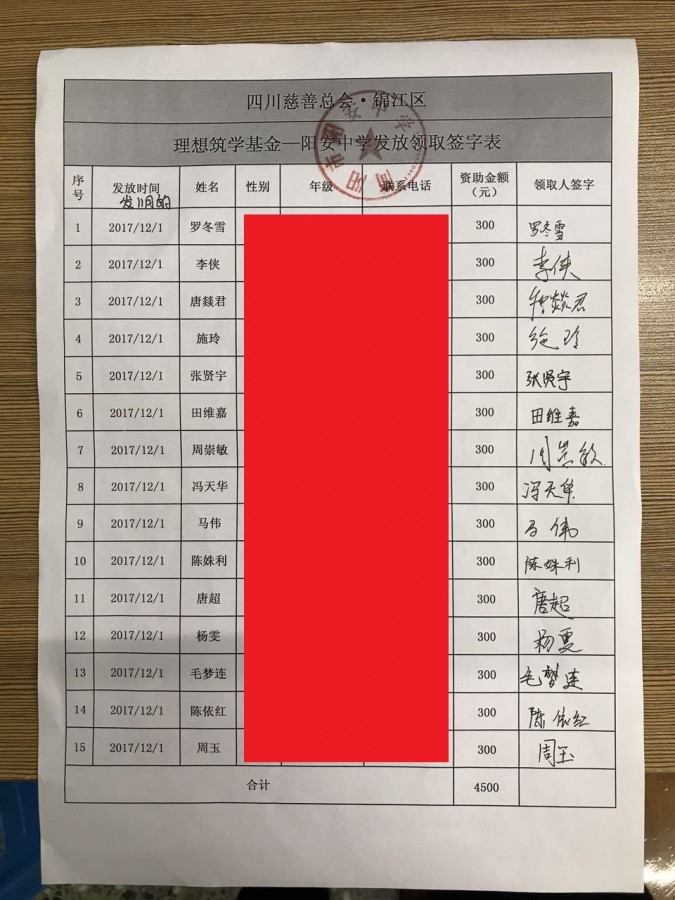 四川慈善总会·锦江区
理想筑学基金—阳安中学发放领取签字表
序号 发放时间 姓名 性别 年级 联系电话 资助金额（元） 领取人签字
发11月的
1 2017/12/1 罗冬雪 300 罗冬雪
2 2017/12/1 李侠 300 李侠
3 2017/12/1 唐燚君 300 唐燚君
4 2017/12/1 施玲 300 施玲
5 2017/12/1 张贤宇 300 张贤宇
6 2017/12/1 田维嘉 300 田维嘉
7 2017/12/1 周崇敏 300 周崇敏
8 2017/12/1 冯天华 300 冯天华
9 2017/12/1 马伟 300 马伟
10 2017/12/1 陈姝利 300 陈姝利
11 2017/12/1 唐超 300 唐超
12 2017/12/1 杨雯 300 杨雯
13 2017/12/1 毛梦连 300 毛梦连
14 2017/12/1 陈依红 300 陈依红
15 2017/12/1 周玉 300 周玉
合计 4500
简阳市阳安中学